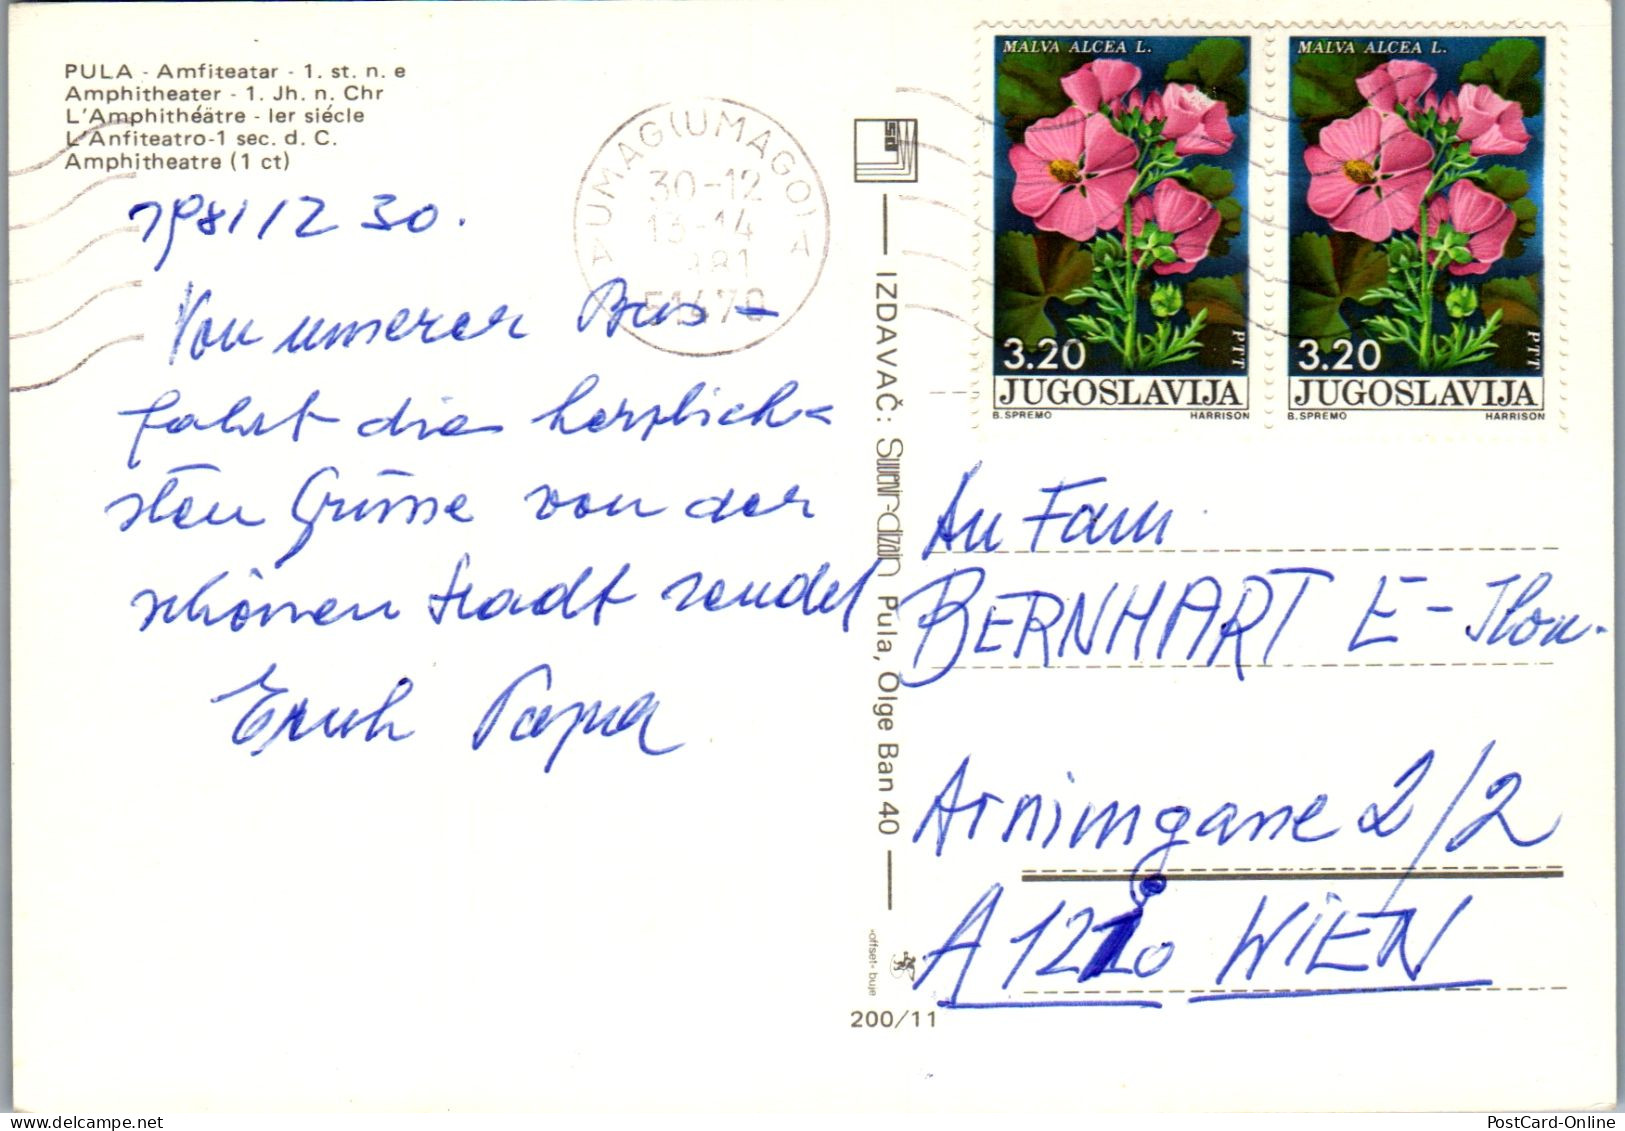 PULA - Amfiteatar - 1. st. n. e
Amphitheater - 1. Jh. n. Chr
L'Amphithéâtre - Ier siécle
L'Anfiteatro-1 sec. d. C.
Amphitheatre (1 ct)
1981/12 30.
Von unserer Bus-
fahrt die herzlich-
sten Grüsse von der
schönen Stadt sendet
Erich Papa
UMAG(UMAGO)
30-12
13-14
981
51470
IZDAVAČ: Suvenir-dizajn Pula, Olge Ban 40
»offset« buje
200/11
MALVA ALCEA L.
3.20
PTT
JUGOSLAVIJA
B. SPREMO HARRISON
MALVA ALCEA L.
3.20
PTT
JUGOSLAVIJA
B. SPREMO HARRISON
An Fam.
BERNHART E - Ilon.
Arnimgasse 2/2
A 1210 WIEN
PostCard-Online - PostCard-Online.com